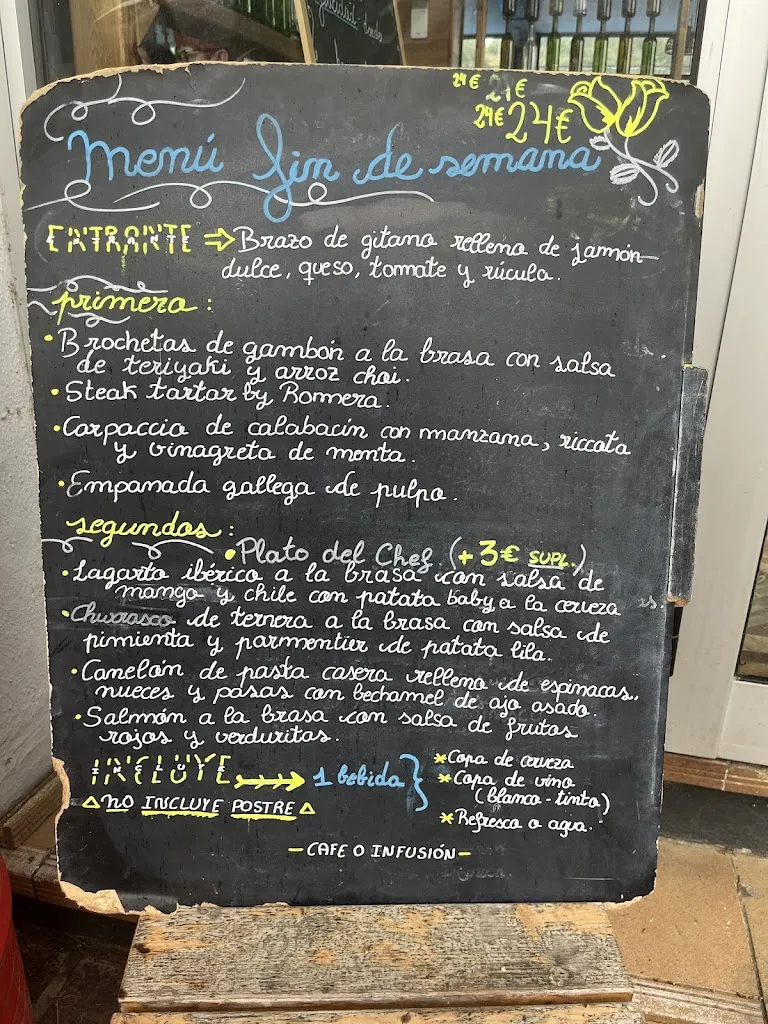 24€ 21€
24€ 24€
Menú fin de semana
ENTRANTE ⇒ Brazo de gitano relleno de jamón
dulce, queso, tomate y rúcula.
primero:
• Brochetas de gambón a la brasa con salsa
de teriyaki y arroz chai.
• Steak tartar by Romera.
• Carpaccio de calabacín con manzana, riccota
y vinagreta de menta.
• Empanada gallega de pulpo.
segundos:
• Plato del Chef (+ 3€ SUPL.)
• Lagarto ibérico a la brasa con salsa de
mango y chile con patata baby a la cerveza
• Churrasco de ternera a la brasa con salsa de
pimienta y parmentier de patata lila.
• Canelón de pasta casera relleno de espinacas,
nueces y pasas con bechamel de ajo asado.
• Salmón a la brasa con salsa de frutos
rojos y verduritas.
INCLUYE → 1 bebida } * Copa de cerveza
* Copa de vino
(blanco-tinto)
* Refresco o agua.
△ NO INCLUYE POSTRE △
- CAFE O INFUSIÓN -